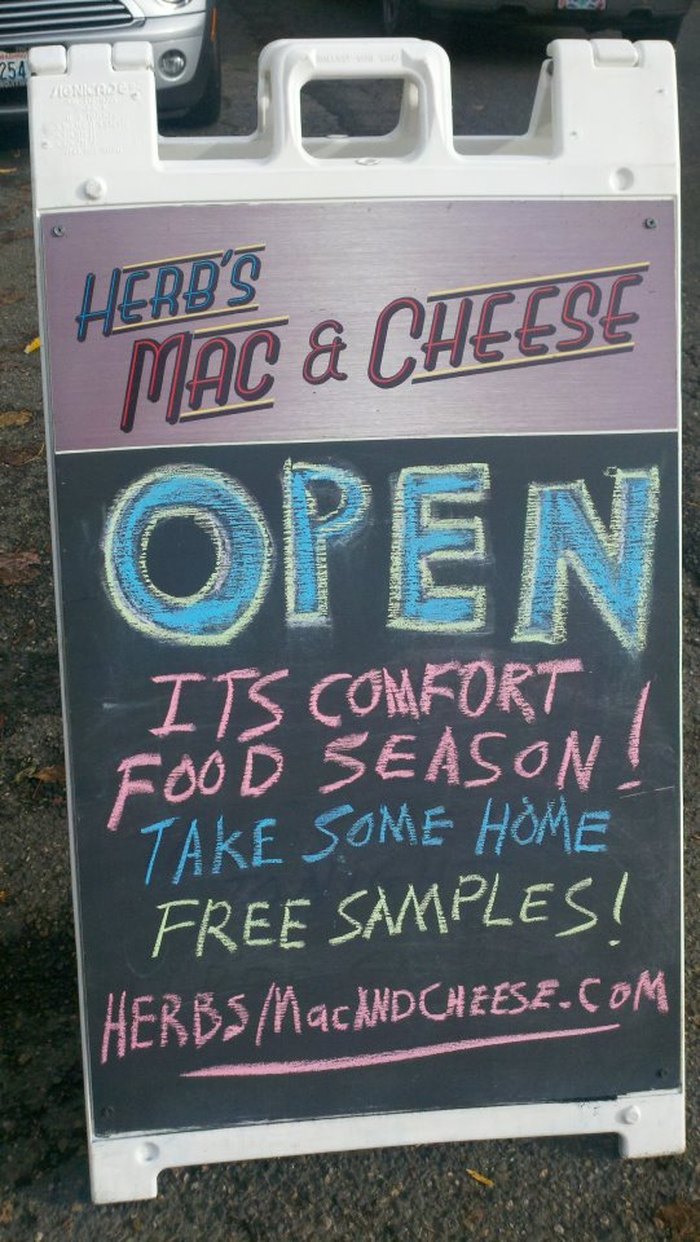 254
SIGNICADE
HERB'S
MAC & CHEESE
OPEN
ITS COMFORT
FOOD SEASON!
TAKE SOME HOME
FREE SAMPLES!
HERBS/MacANDCHEESE.COM